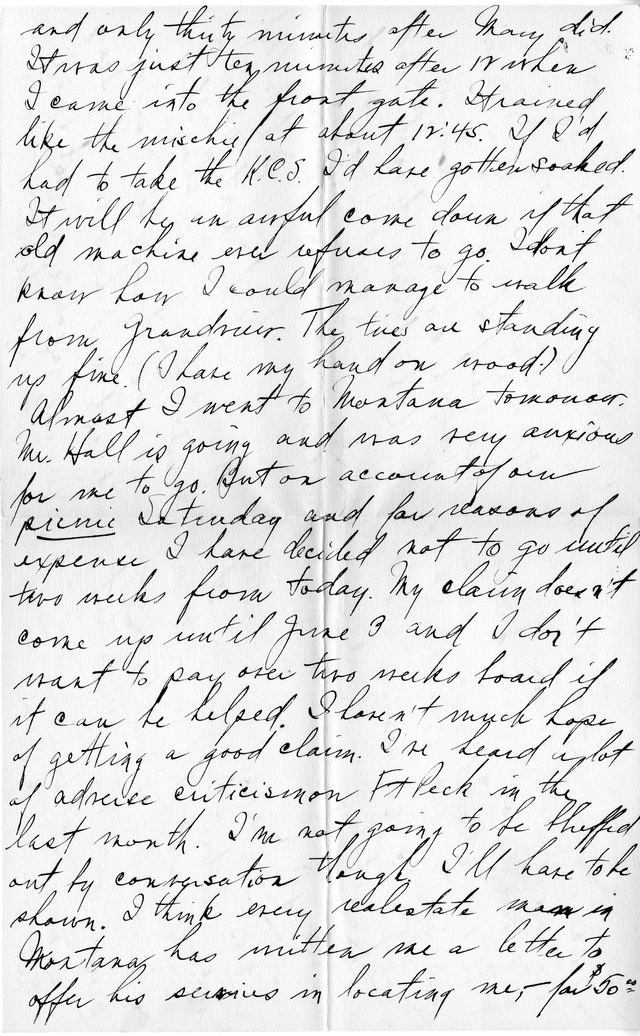 and only thirty minutes after Mary did.
It was just ten minutes after 12 when
I came into the front gate. It rained
like the mischief at about 12:45. If I'd
had to take the K.C.S. I'd have gotten soaked.
It will be an awful come down if that
old machine ever refuses to go. I don't
know how I would manage to walk
from Grandview. The tires are standing
up fine. (I have my hand on wood.)
Almost I went to Montana tomorrow.
Mr. Hall is going and was very anxious
for me to go. But on account of our
picnic Saturday and for reasons of
expense I have decided not to go until
two weeks from today. My claim doesn't
come up until June 3 and I don't
want to pay over two weeks board if
it can be helped. I haven't much hope
of getting a good claim. I've heard a lot
of adverse criticism on Ft Peck in the
last month. I'm not going to be bluffed
out by conversation though. I'll have to be
shown. I think every realestate man in
Montana has written me a letter to
offer his services in locating me,- for $50⁰⁰